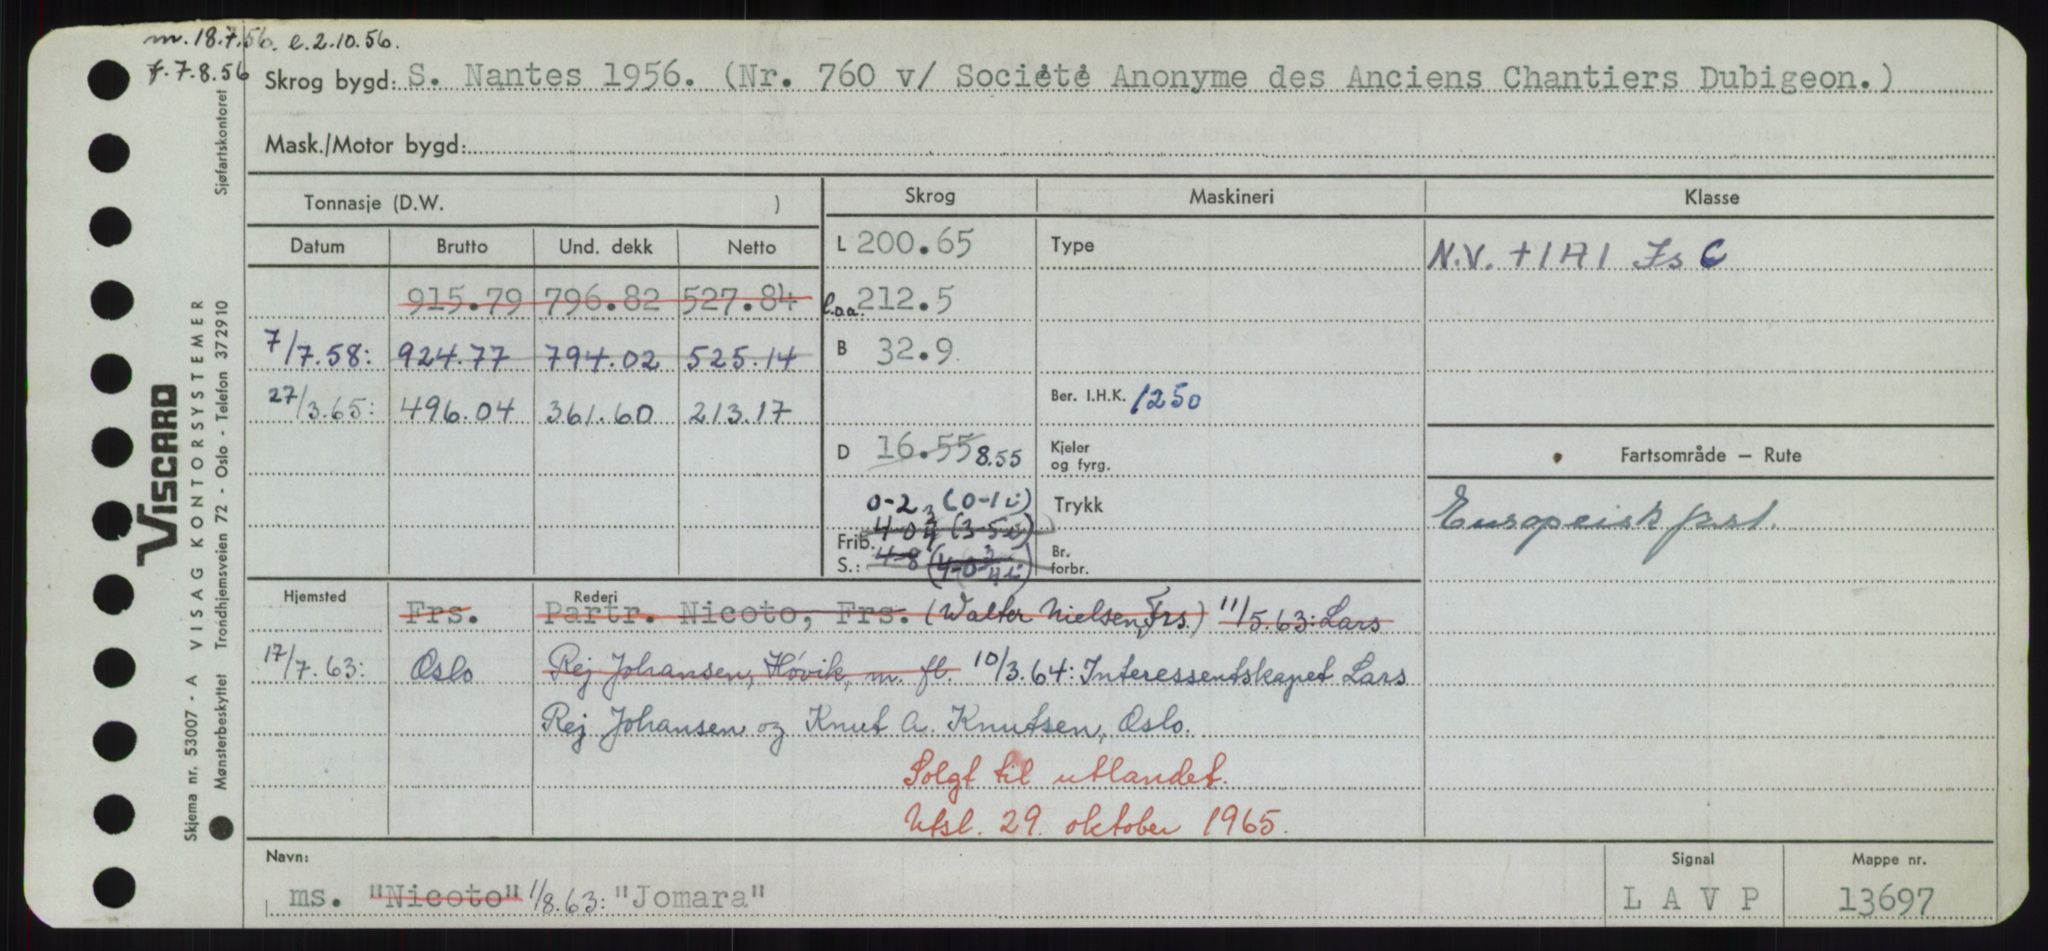 m. 18.7.56. e. 2.10.56.
f. 7.8.56
Skrog bygd: S. Nantes 1956. (Nr. 760 v/ Société Anonyme des Anciens Chantiers Dubigeon.)
Mask./Motor bygd:
Tonnasje (D.W. )
Skrog
Maskineri
Klasse
Datum Brutto Und. dekk Netto
L 200.65
Type
N.V. +1A1 Is C
915.79 796.82 527.84
l.o.a. 212.5
7/7.58: 924.77 794.02 525.14
B 32.9
27/3.65: 496.04 361.60 213.17
Ber. I.H.K. 1250
D 16.55 8.55
Kjeler
og fyrg.
Fartsområde — Rute
0-2 (0-1 i)
Trykk
Europeisk fart.
Frib.
4-0 3/4 (3-5 i)
S.: 4-8 (4-0 3/4 i)
Br.
forbr.
Hjemsted
Rederi
Frs. Partr. Nicoto, Frs. (Walter Nielsen, Frs.) 11/5.63: Lars
17/7.63: Oslo Rej Johansen, Høvik, m. fl. 10/3.64: Interessentskapet Lars
Rej Johansen og Knut A. Knutsen, Oslo.
Solgt til utlandet.
Utsl. 29. oktober 1965.
Navn:
Signal
Mappe nr.
ms. "Nicoto" 1/8.63: "Jomara"
L A V P
13697
VISCARD
Skjema nr. 53007 - A VISAG KONTORSYSTEMER
Mønsterbeskyttet Trondhjemsveien 72 - Oslo - Telefon 372910 Sjøfartskontoret